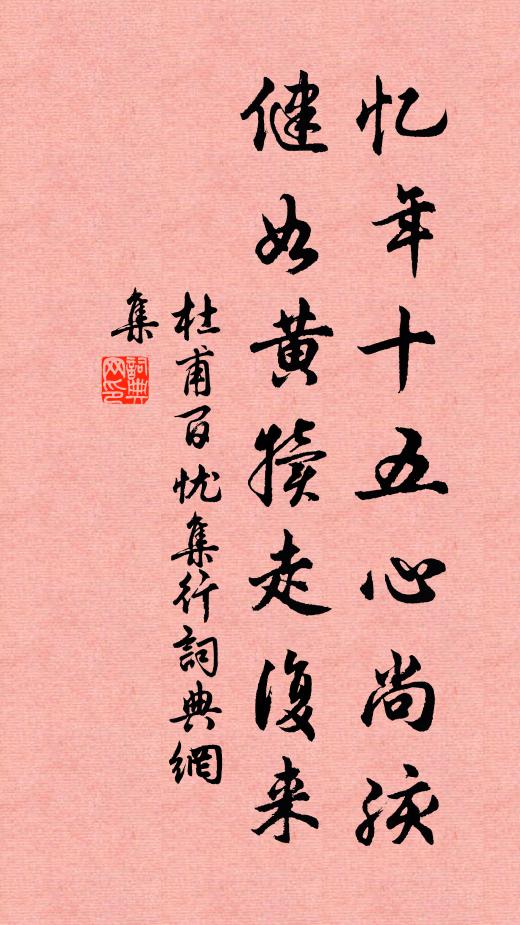 忆年十五心尚孩
健如黄犊走复来
杜甫百忧集行詞典網
集
詞典
网印